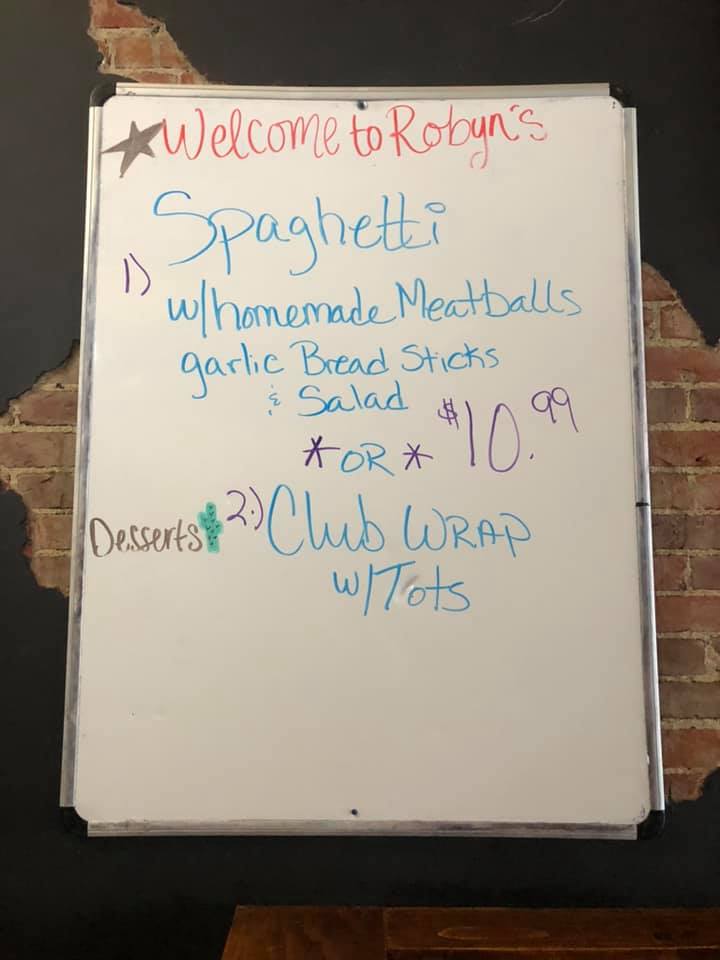 Welcome to Robyn's
Spaghetti
1)
w/homemade Meatballs
garlic Bread Sticks
& Salad
$10.99
*OR*
Desserts
2.) Club WRAP
w/Tots